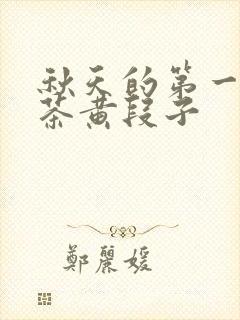 秋天的第一
茶黄段子
鄭麗媛